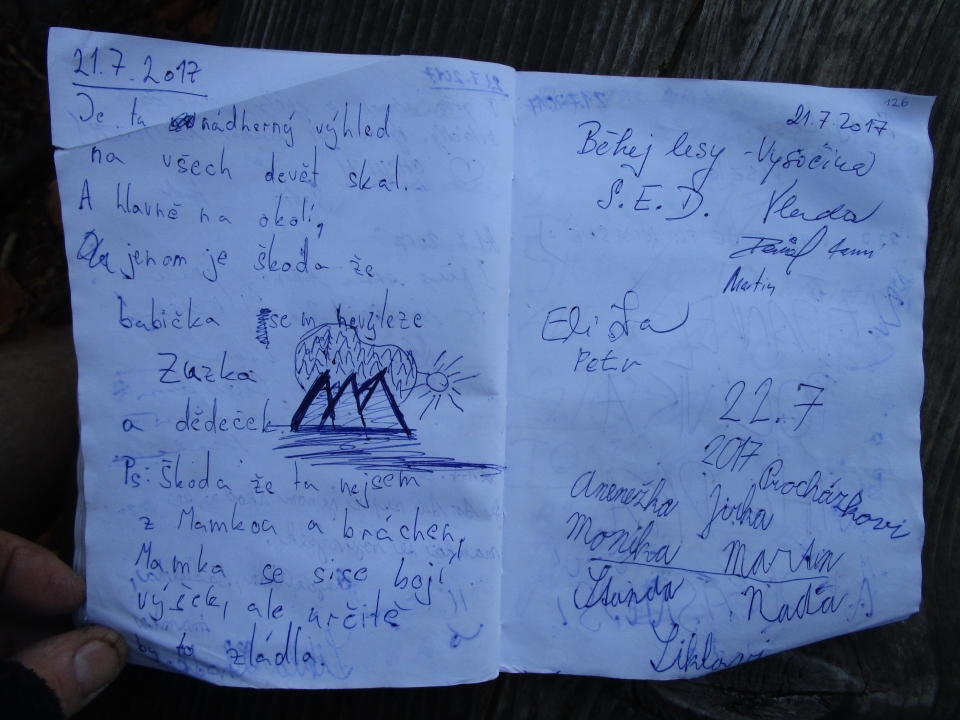 21.7.2017
Je ta nádherný výhled
na všech devět skal.
A hlavně na okolí,
jenom je škoda že
babička sem nevyleze
Zuzka
a dědeček
Ps: Škoda že ta nejsem
z Mamkoa a bráchen,
Mamka se sice bojí
výšek, ale určitě
by to zládla.
126
21.7.2017
Běhej lesy - Vysočina
S.E.D. Vlada
Martin
Eliška
Petr
22.7
2017
Procházkovi
Anenežka Jirka
Monika Martin
Standa Naďa
Šiklovi